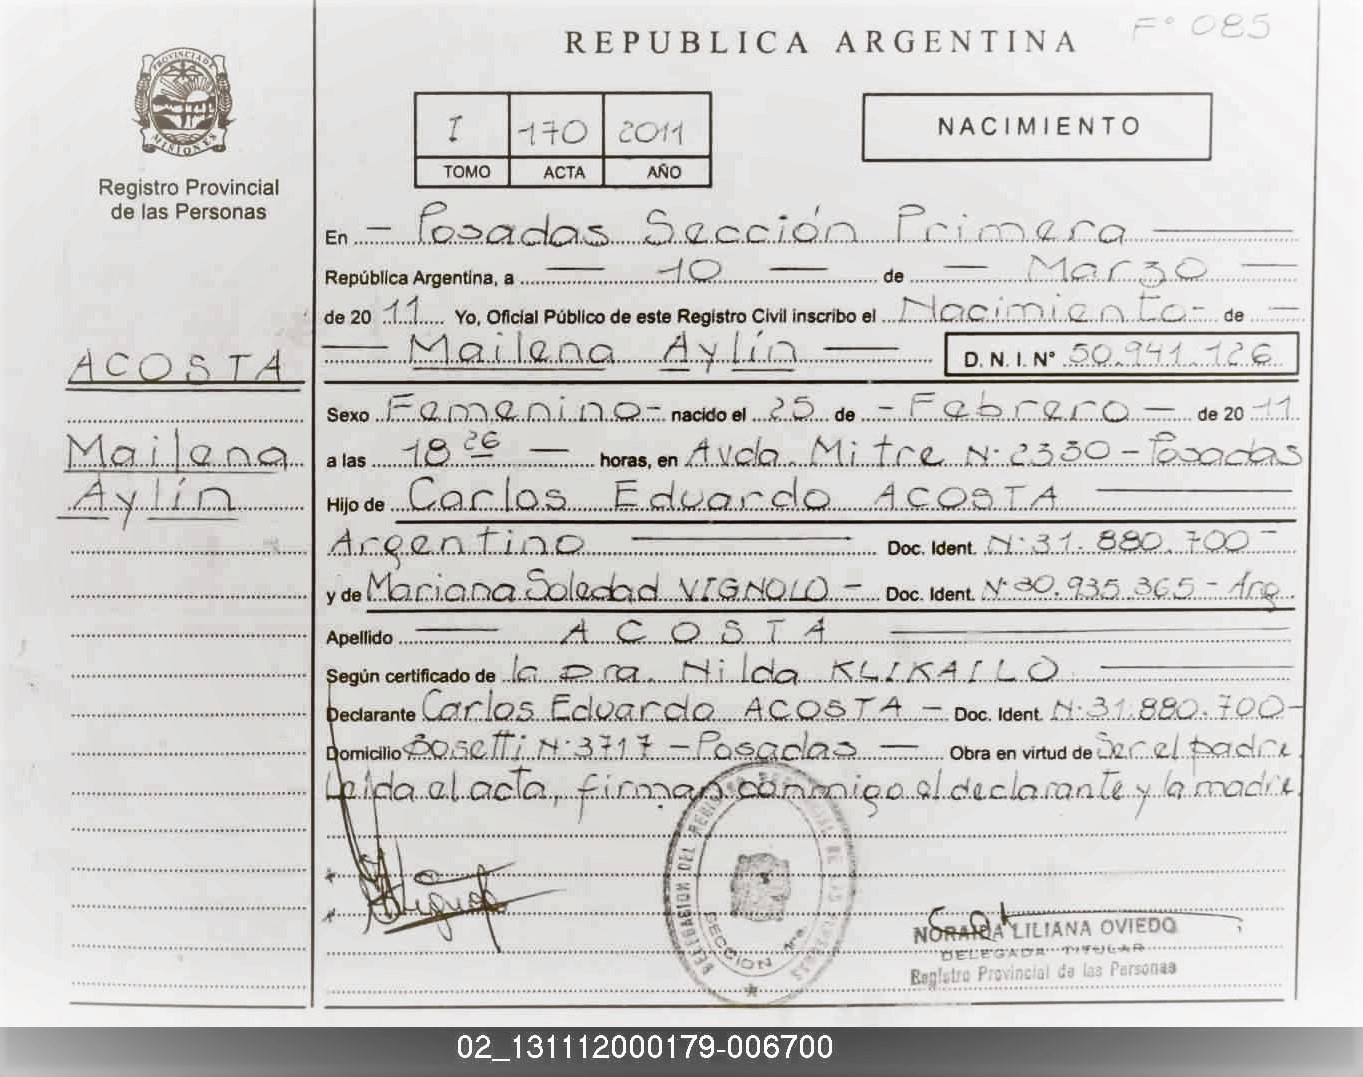 F° 085
REPUBLICA ARGENTINA
PROVINCIA DE MISIONES
Registro Provincial
de las Personas
I 170 2011
TOMO ACTA AÑO
NACIMIENTO
En - Posadas Sección Primera
República Argentina, a - 10 - de - Marzo -
de 2011 Yo, Oficial Público de este Registro Civil inscribo el Nacimiento - de -
- Mailena Aylín - D. N. I. N° 50.941.126
ACOSTA
Mailena
Aylín
Sexo Femenino - nacido el 25 de - Febrero - de 2011
a las 18 26 - horas, en Avda. Mitre N° 2330 - Posadas
Hijo de Carlos Eduardo ACOSTA
Argentino - Doc. Ident. N° 31.880.700 -
y de Mariana Soledad VIGNOLO - Doc. Ident. N° 30.935.365 - Arg
Apellido - ACOSTA
Según certificado de la Dra. Nilda KLIKAILO
Declarante Carlos Eduardo ACOSTA - Doc. Ident. N° 31.880.700 -
Domicilio Bosetti N° 3717 - Posadas - Obra en virtud de Ser el padre.
Leída el acta, firman conmigo el declarante y la madre.
DELEGACION DEL REGISTRO PROVINCIAL DE LAS PERSONAS
SECCION 1ra.
NORAIDA LILIANA OVIEDO
DELEGADA TITULAR
Registro Provincial de las Personas
02_131112000179-006700